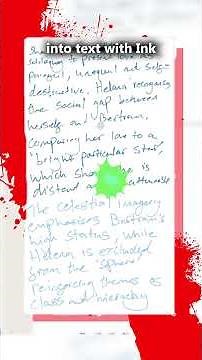 into text with Ink
to prove love is
painful, unequal and self-
destructive. Helena recognises
the social gap between
herself and Bertram,
comparing her love to a
'bright particular star',
which she is
distant and
The celestial imagery
emphasises Bertram's
high status, while
Helena is excluded
from the 'sphere'
recognising themes of
class and hierarchy